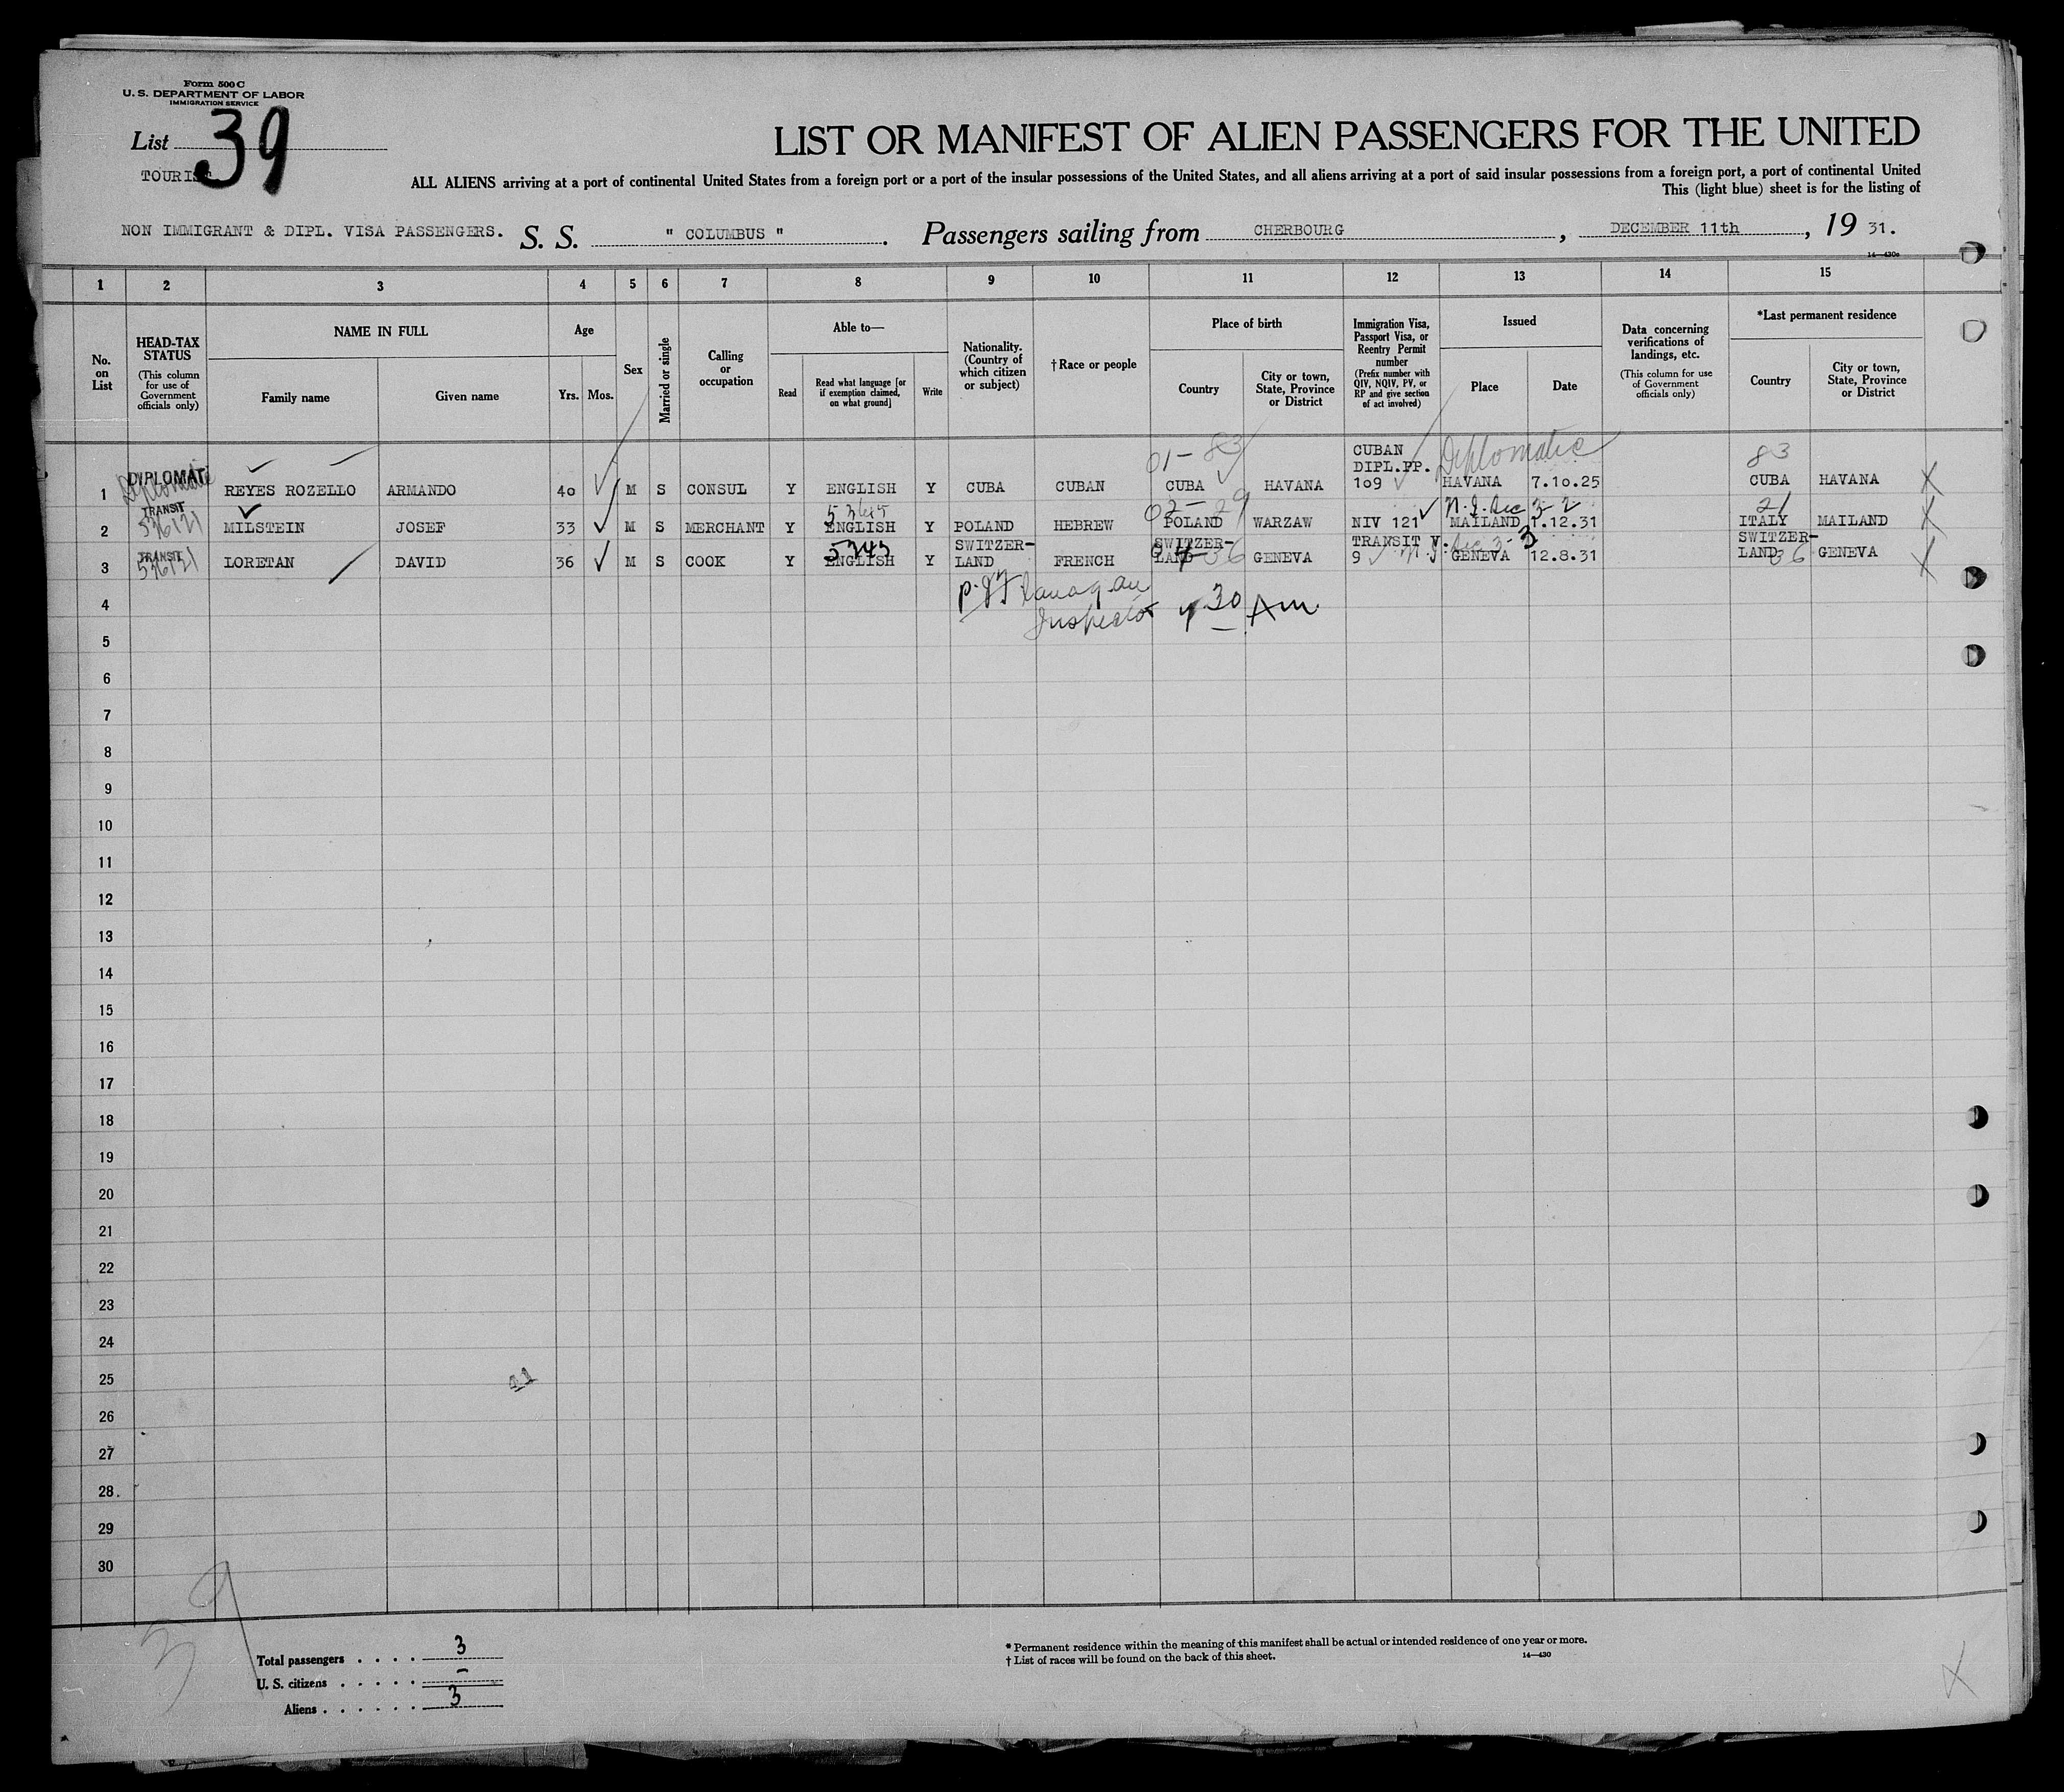 Form 500 C
U. S. DEPARTMENT OF LABOR
IMMIGRATION SERVICE
List 39
TOURIST
LIST OR MANIFEST OF ALIEN PASSENGERS FOR THE UNITED
ALL ALIENS arriving at a port of continental United States from a foreign port or a port of the insular possessions of the United States, and all aliens arriving at a port of said insular possessions from a foreign port, a port of continental United
This (light blue) sheet is for the listing of
NON IMMIGRANT & DIPL. VISA PASSENGERS. S. S. " COLUMBUS ". Passengers sailing from CHERBOURG, DECEMBER 11th, 19 31.
14—430c
1 2 3 4 5 6 7 8 9 10 11 12 13 14 15
No. on List
HEAD-TAX STATUS
(This column for use of Government officials only)
NAME IN FULL
Family name Given name
Age
Yrs. Mos.
Sex
Married or single
Calling or occupation
Able to—
Read
Read what language [or if exemption claimed, on what ground]
Write
Nationality. (Country of which citizen or subject)
†Race or people
Place of birth
Country
City or town, State, Province or District
Immigration Visa, Passport Visa, or Reentry Permit number
(Prefix number with QIV, NQIV, PV, or RP and give section of act involved)
Issued
Place Date
Data concerning verifications of landings, etc.
(This column for use of Government officials only)
*Last permanent residence
Country
City or town, State, Province or District
01-83 CUBAN Diplomatic 83
DIPLOMAT DIPL.PP.
Diplomatic
1 REYES ROZELLO ARMANDO 40 M S CONSUL Y ENGLISH Y CUBA CUBAN CUBA HAVANA 109 HAVANA 7.10.25 CUBA HAVANA X
TRANSIT 02-29 21
2 MILSTEIN JOSEF 33 M S MERCHANT Y ENGLISH Y POLAND HEBREW POLAND WARZAW NIV 121 MAILAND 1.12.31 ITALY MAILAND X
TRANSIT SWITZER- SWITZER- TRANSIT V. SWITZER-
3 LORETAN DAVID 36 M S COOK Y ENGLISH Y LAND FRENCH LAND GENEVA 9 GENEVA 12.8.31 LAND 36 GENEVA X
4 P. J. Flanagan
Inspector 30 Am
5
6
7
8
9
10
11
12
13
14
15
16
17
18
19
20
21
22
23
24
25
26
27
28
29
30
39
Total passengers . . . . 3
U. S. citizens . . . . . –
Aliens . . . . . . 3
* Permanent residence within the meaning of this manifest shall be actual or intended residence of one year or more.
† List of races will be found on the back of this sheet.
14—430
X